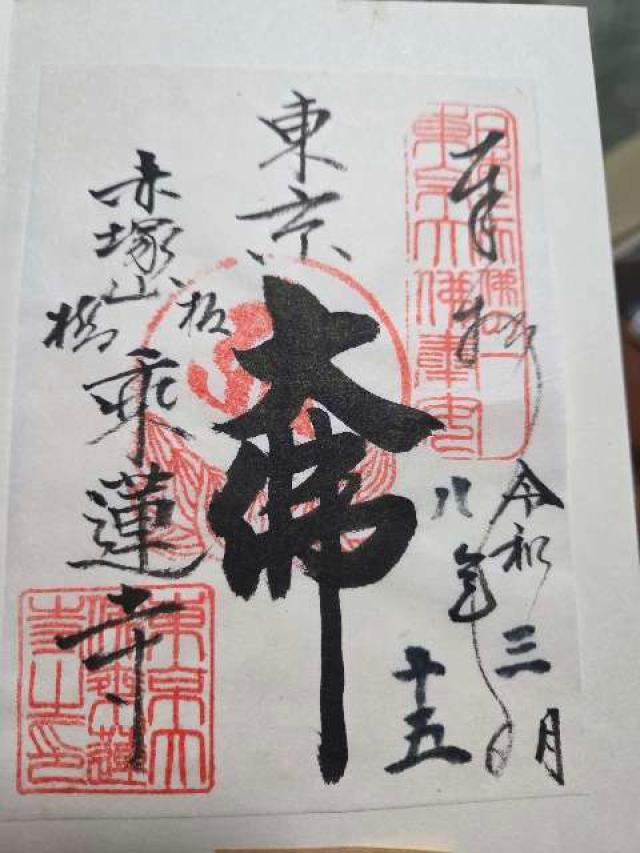 奉拝
令和八年
三月十五日
東京
大佛
赤塚山
板橋
乘蓮寺
東京大
佛乗蓮
寺之印